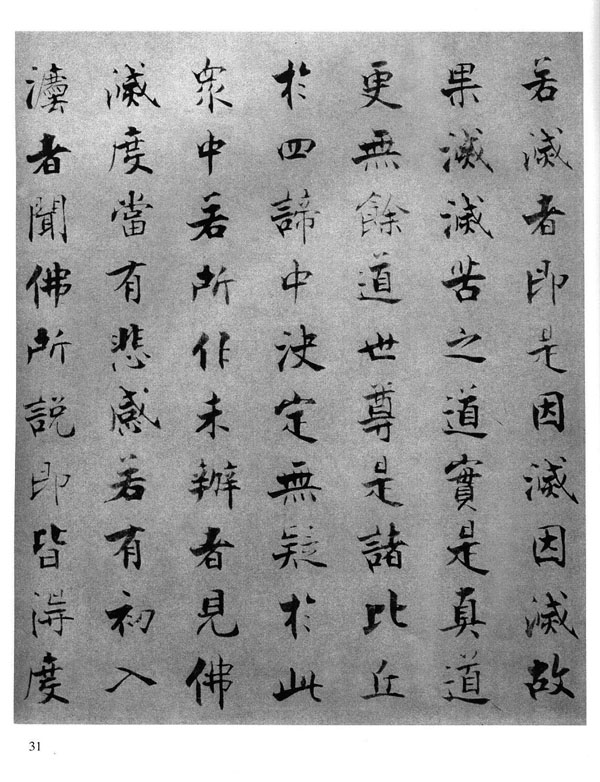 若滅者即是因滅因滅故
果滅滅苦之道實是真道
更無餘道世尊是諸比丘
於四諦中決定無疑於此
眾中若所作未辦者見佛
滅度當有悲感若有初入
灋者聞佛所説即皆得度
31